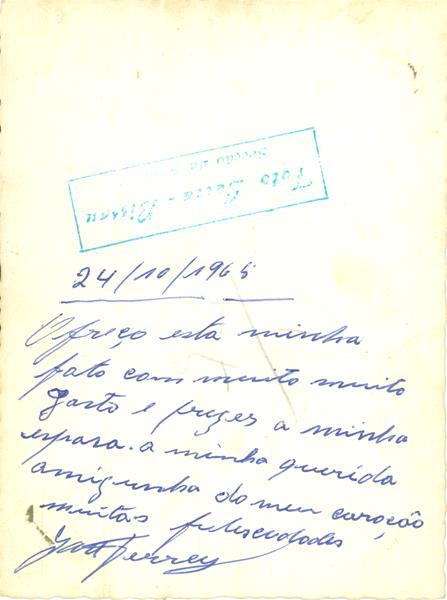 Foto Serra - Bissau
Secção de
24/10/1965
Ofreço esta minha
foto com muito muito
gosto e prezes a minha
espora. a minha querida
amigunha do meu coração
muitas feliscidades